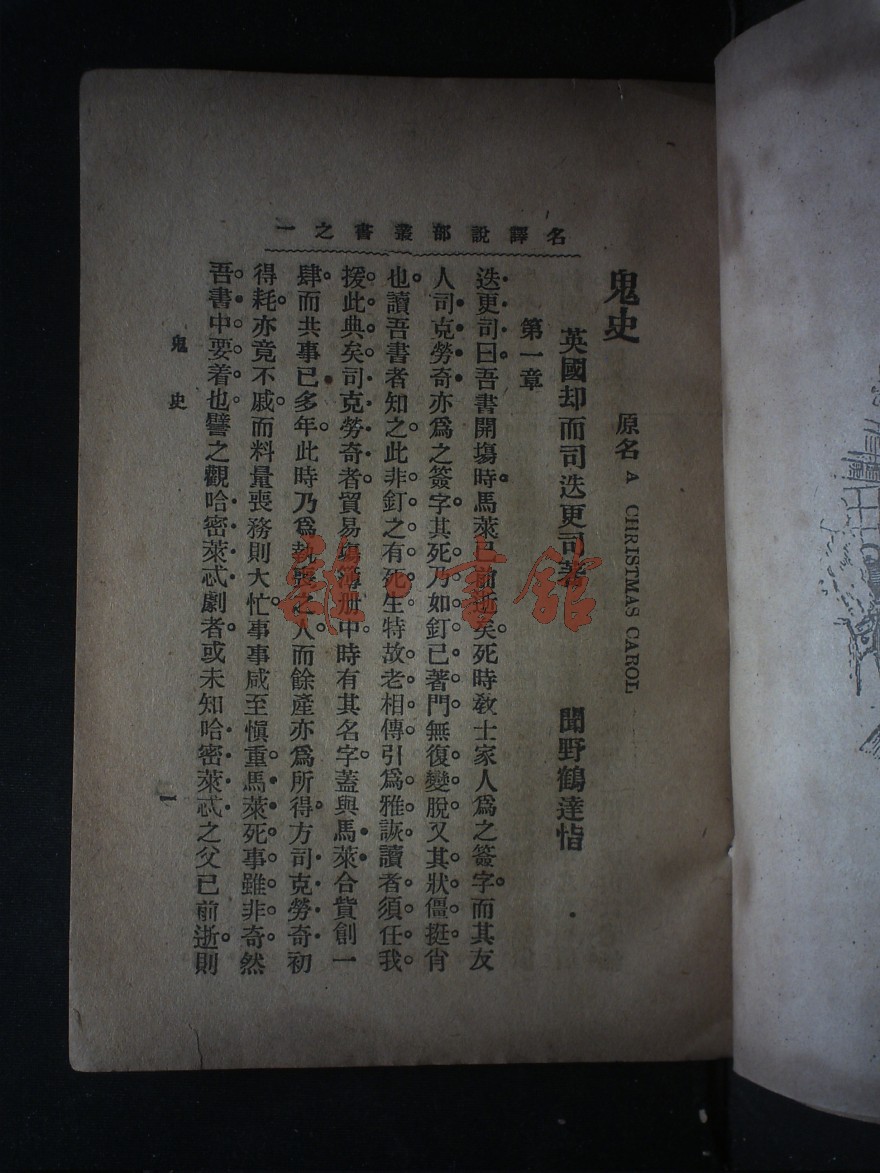 名譯說部叢書之一
鬼史 原名 A CHRISTMAS CAROL
英國却而司迭更司著 聞野鶴達恉
第一章
迭更司曰。吾書開塲時。馬萊已前逝矣。死時敎士家人爲之簽字。而其友
人司克勞奇亦爲之簽字。其死乃如釘已著門。無復變脫。又其狀僵挺肖
也。讀吾書者知之。此非釘之有死生。特故老相傳。引爲雅詼。讀者須任我
援此典矣。司克勞奇者。貿易塲簿册中。時有其名字。蓋與馬萊合貲創一
肆。而共事已多年。此時乃爲執喪之人。而餘產亦爲所得。方司克勞奇初
得耗。亦竟不戚。而料量喪務則大忙。事事咸至愼重。馬萊死事雖非奇。然
吾書中要着也。譬之觀哈密萊忒劇者。或未知哈密萊忒之父已前逝。則
鬼史 一
雜·書館